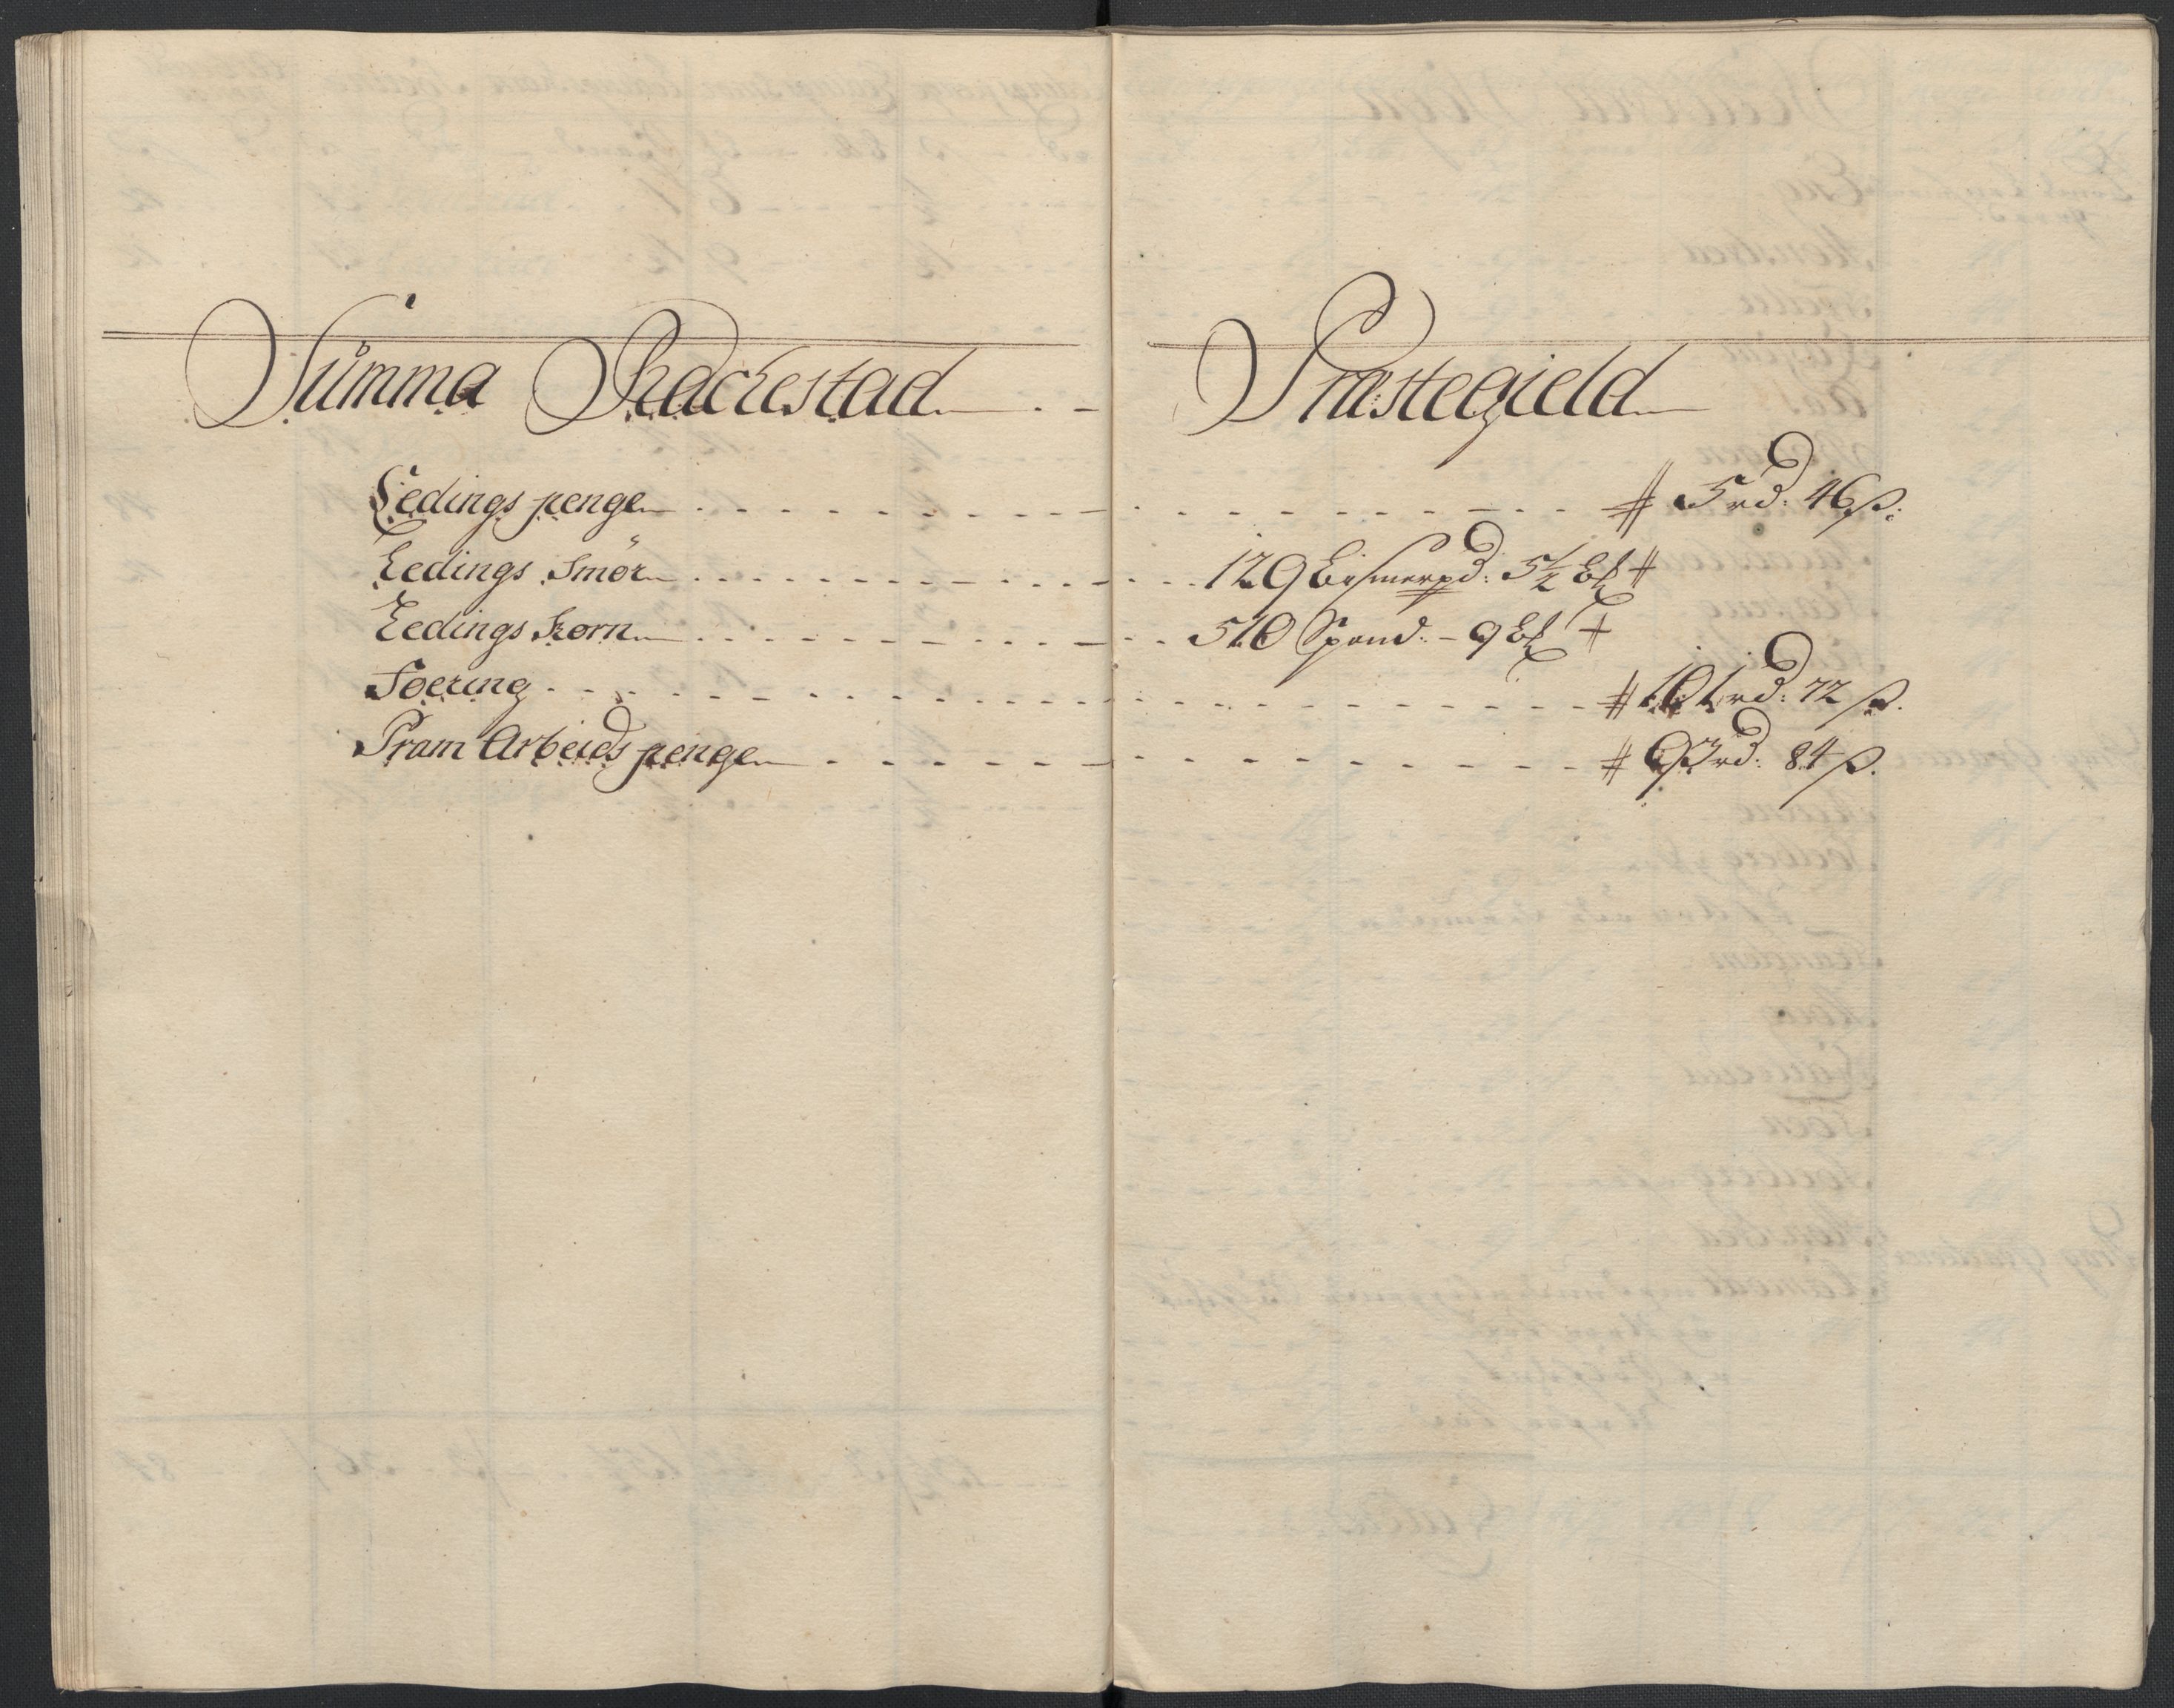 Summa Rackestad Præstegield
Ledings penge # 5 rd: 46 ß:
Ledings Smör 129 Bismerpd: 5½ ℔ #
Ledings Korn 510 Spand: - 9 ℔ #
Foering # 101 rd: 72 ß.
Pram Arbeids penge rd: 84 ß.